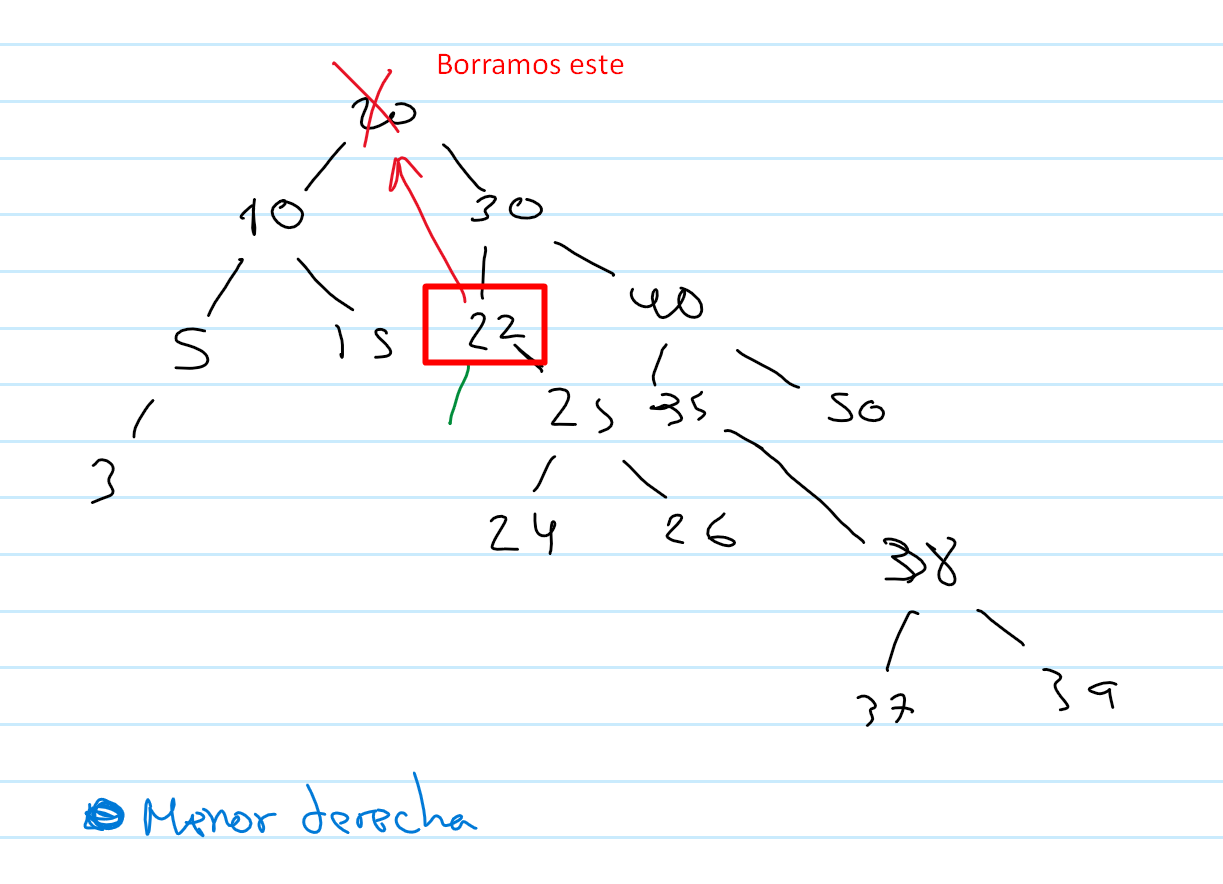 Borramos este
20
10 30
5 15 22 40
3 25 35 50
24 26 38
37 39
Menor derecha